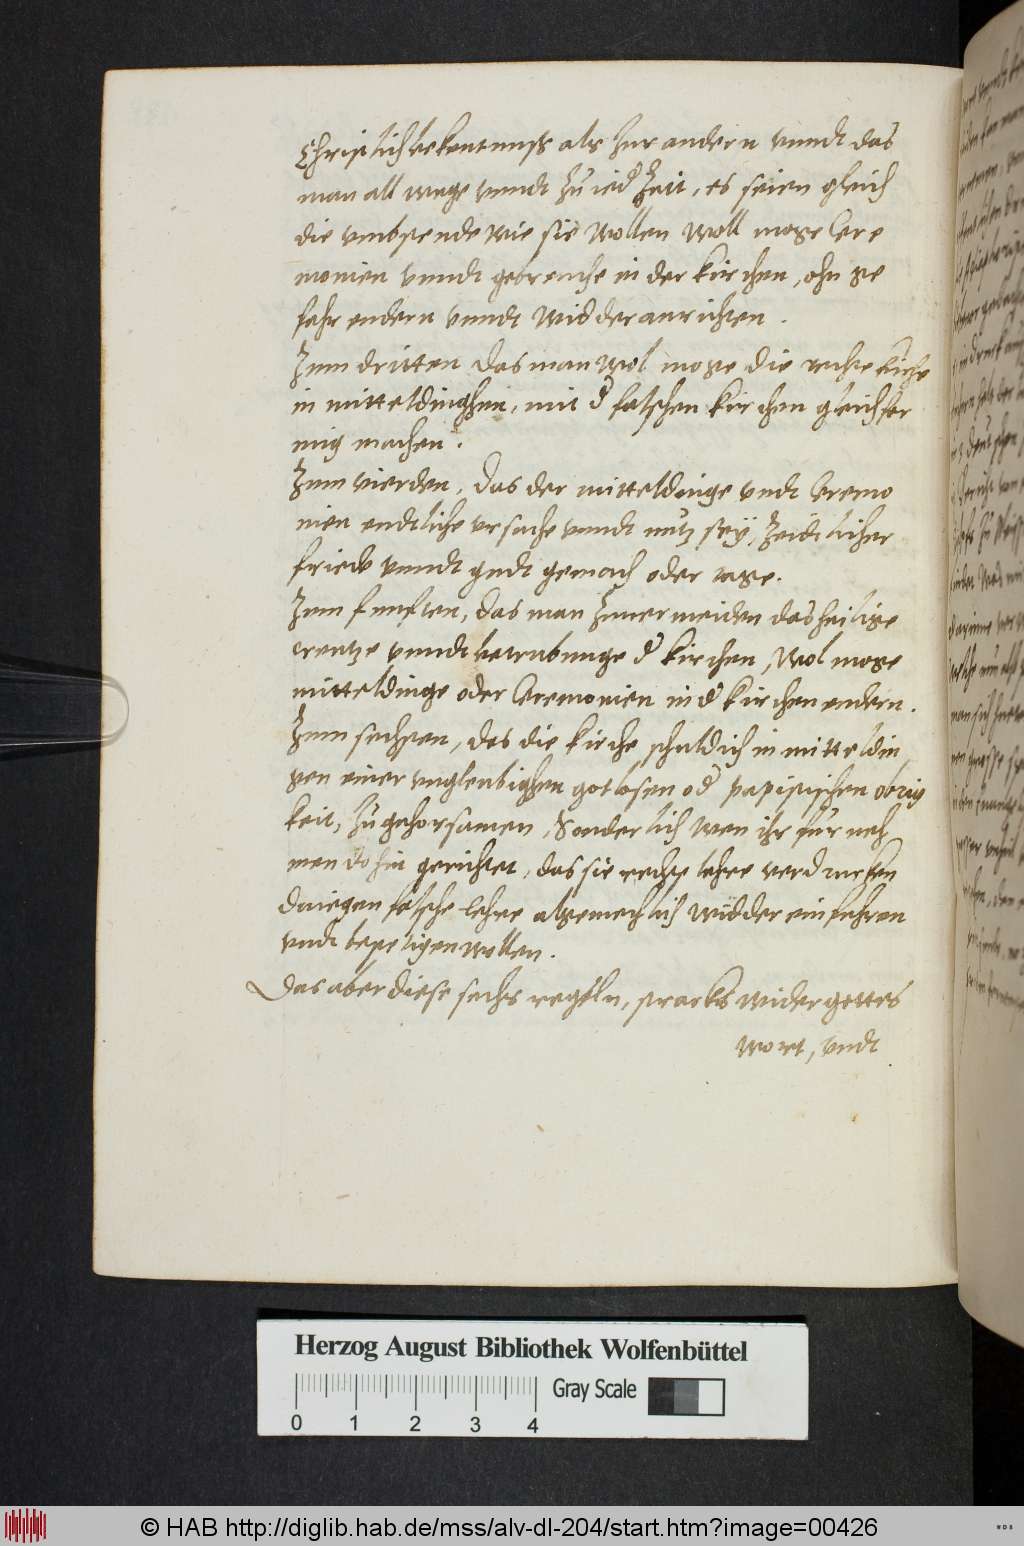 Christlich bekentnuss als zur andern vnndt das
man all wege vnndt zu ied Zeit, es seien gleich
die vmbstende wie sie wollen woll moge Cere
monien vnndt gebreuche in der kirchen, ohn ge
fahr endern vnndt widderanrichten.
Zum dritten das man wol moge die rechte kirche
in mitteldinghen, mit d falschen kirchen gleichfor
mig machen.
Zum vierden, das der mitteldinge vndt Ceremo
nien endtliche vrsache vnndt nutz sey, Zeidtlicher
friede vnndt gudt gemach oder
Zum funften, das man zuuermeiden das heilige
creutze vnndt betrubunge d kirchen, wol moge
mitteldinge oder Ceremonien in d kirchen endern.
Zum sechsten, das die kirche schuldich in mitteldin
gen einer vngleubighen gotlosen od papistischen obrig
keit, zu gehorsamen, Sonderlich wen ihr fur neh
men dohin gerichtet, das sie rechte lehre verdrucken
falsche lehre algemechlich widder einfuhren
vndt bestetigen wollen.
Das aber diese sechs regeln, stracks wider gottes
wort, vndt
Herzog August Bibliothek Wolfenbüttel
0 1 2 3 4 Gray Scale
© HAB http://diglib.hab.de/mss/alv-dl-204/start.htm?image=00426